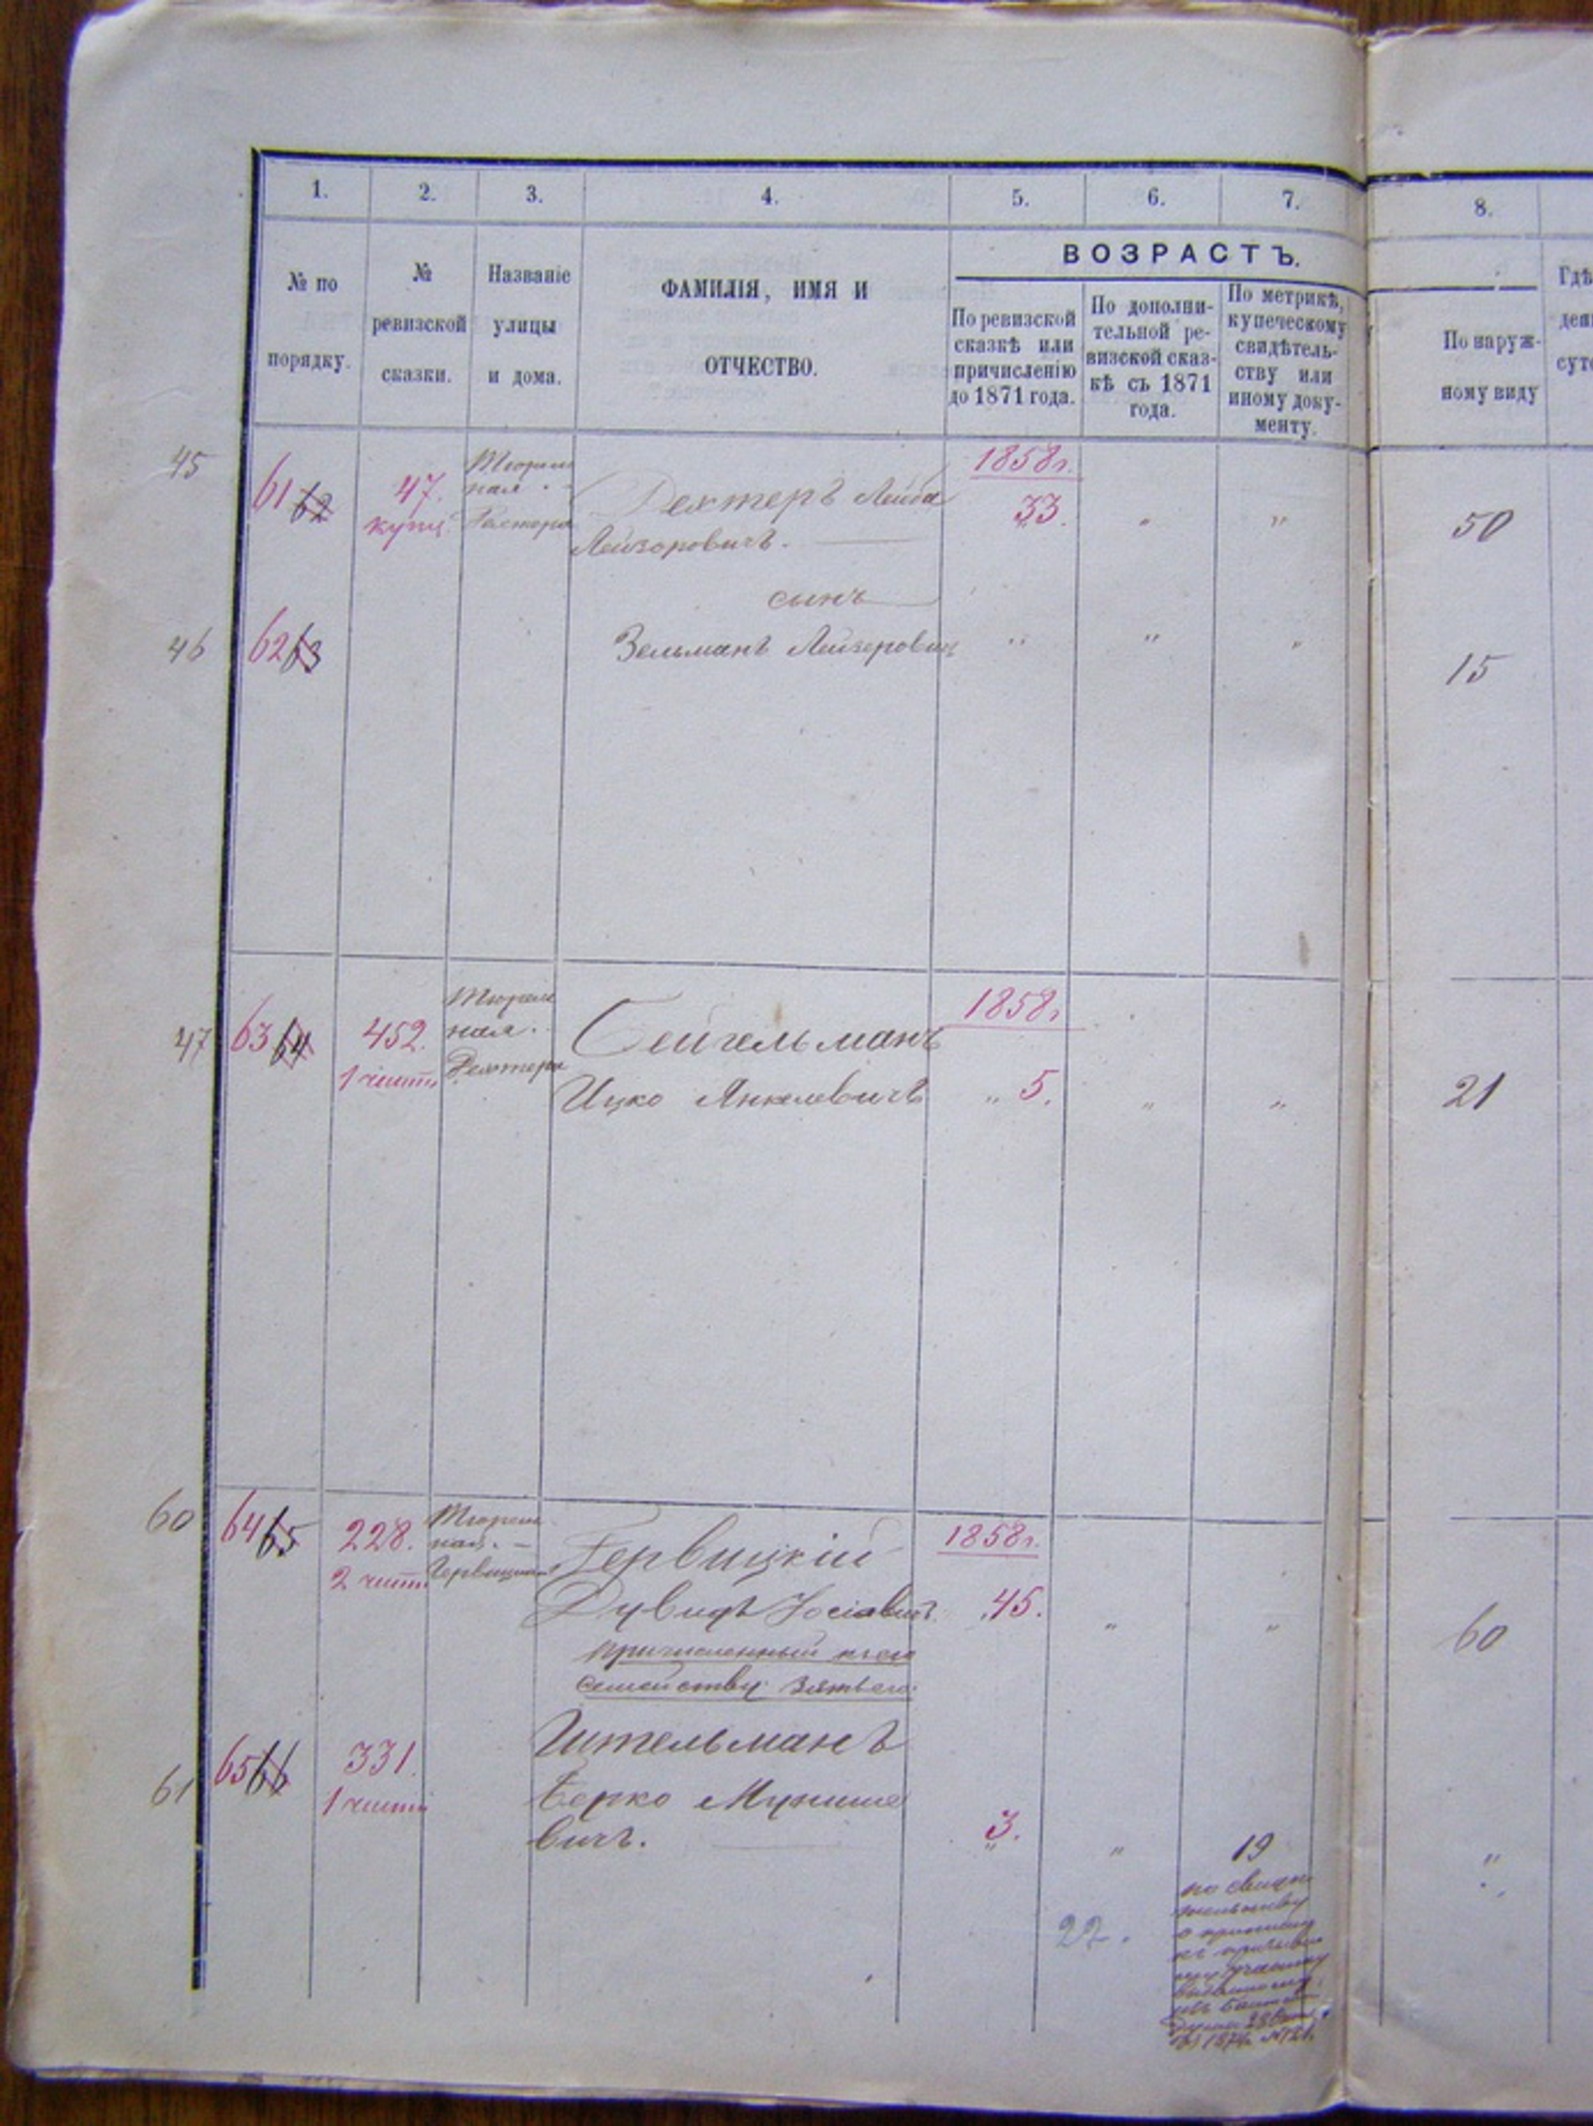 1. 2. 3. 4. 5. 6. 7. 8.
№ по порядку.
№ ревизской сказки.
Названіе улицы и дома.
ФАМИЛІЯ, ИМЯ И
ОТЧЕСТВО.
ВОЗРАСТЪ.
По ревизской
сказкѣ или
причисленію
до 1871 года.
По дополни-
тельной ре-
визской сказ-
кѣ съ 1871
года.
По метрикѣ,
купеческому
свидѣтель-
ству или
иному доку-
менту.
По наруж-
ному виду
Гдѣ
45
61 62
47.
купц.
Тюрем
ная.
Рехтера
Рехтеръ Лейба
Лейзоровичъ.
1858г.
33. " "
50
сынъ
46
62 63
Зельманъ Лейзерович
" " "
15
47
63 64
452.
1 части
Тюрем
ная.
Рехтера
Сейгельманъ
Ицко Янкелевичъ
1858г
" 5. " "
21
60
64 65
228.
2 части
Тюрем
ная.
Гервицкій
Дувидъ Іосіовичъ
1858г.
45. " "
60
причисленный къ его
семейству зять его
61
65 66
331.
1 части
Штельманъ
Берко Мунише
вичъ.
3. " 19 "
27.
по свидѣ
тельству
о
участку
1874г. №121.